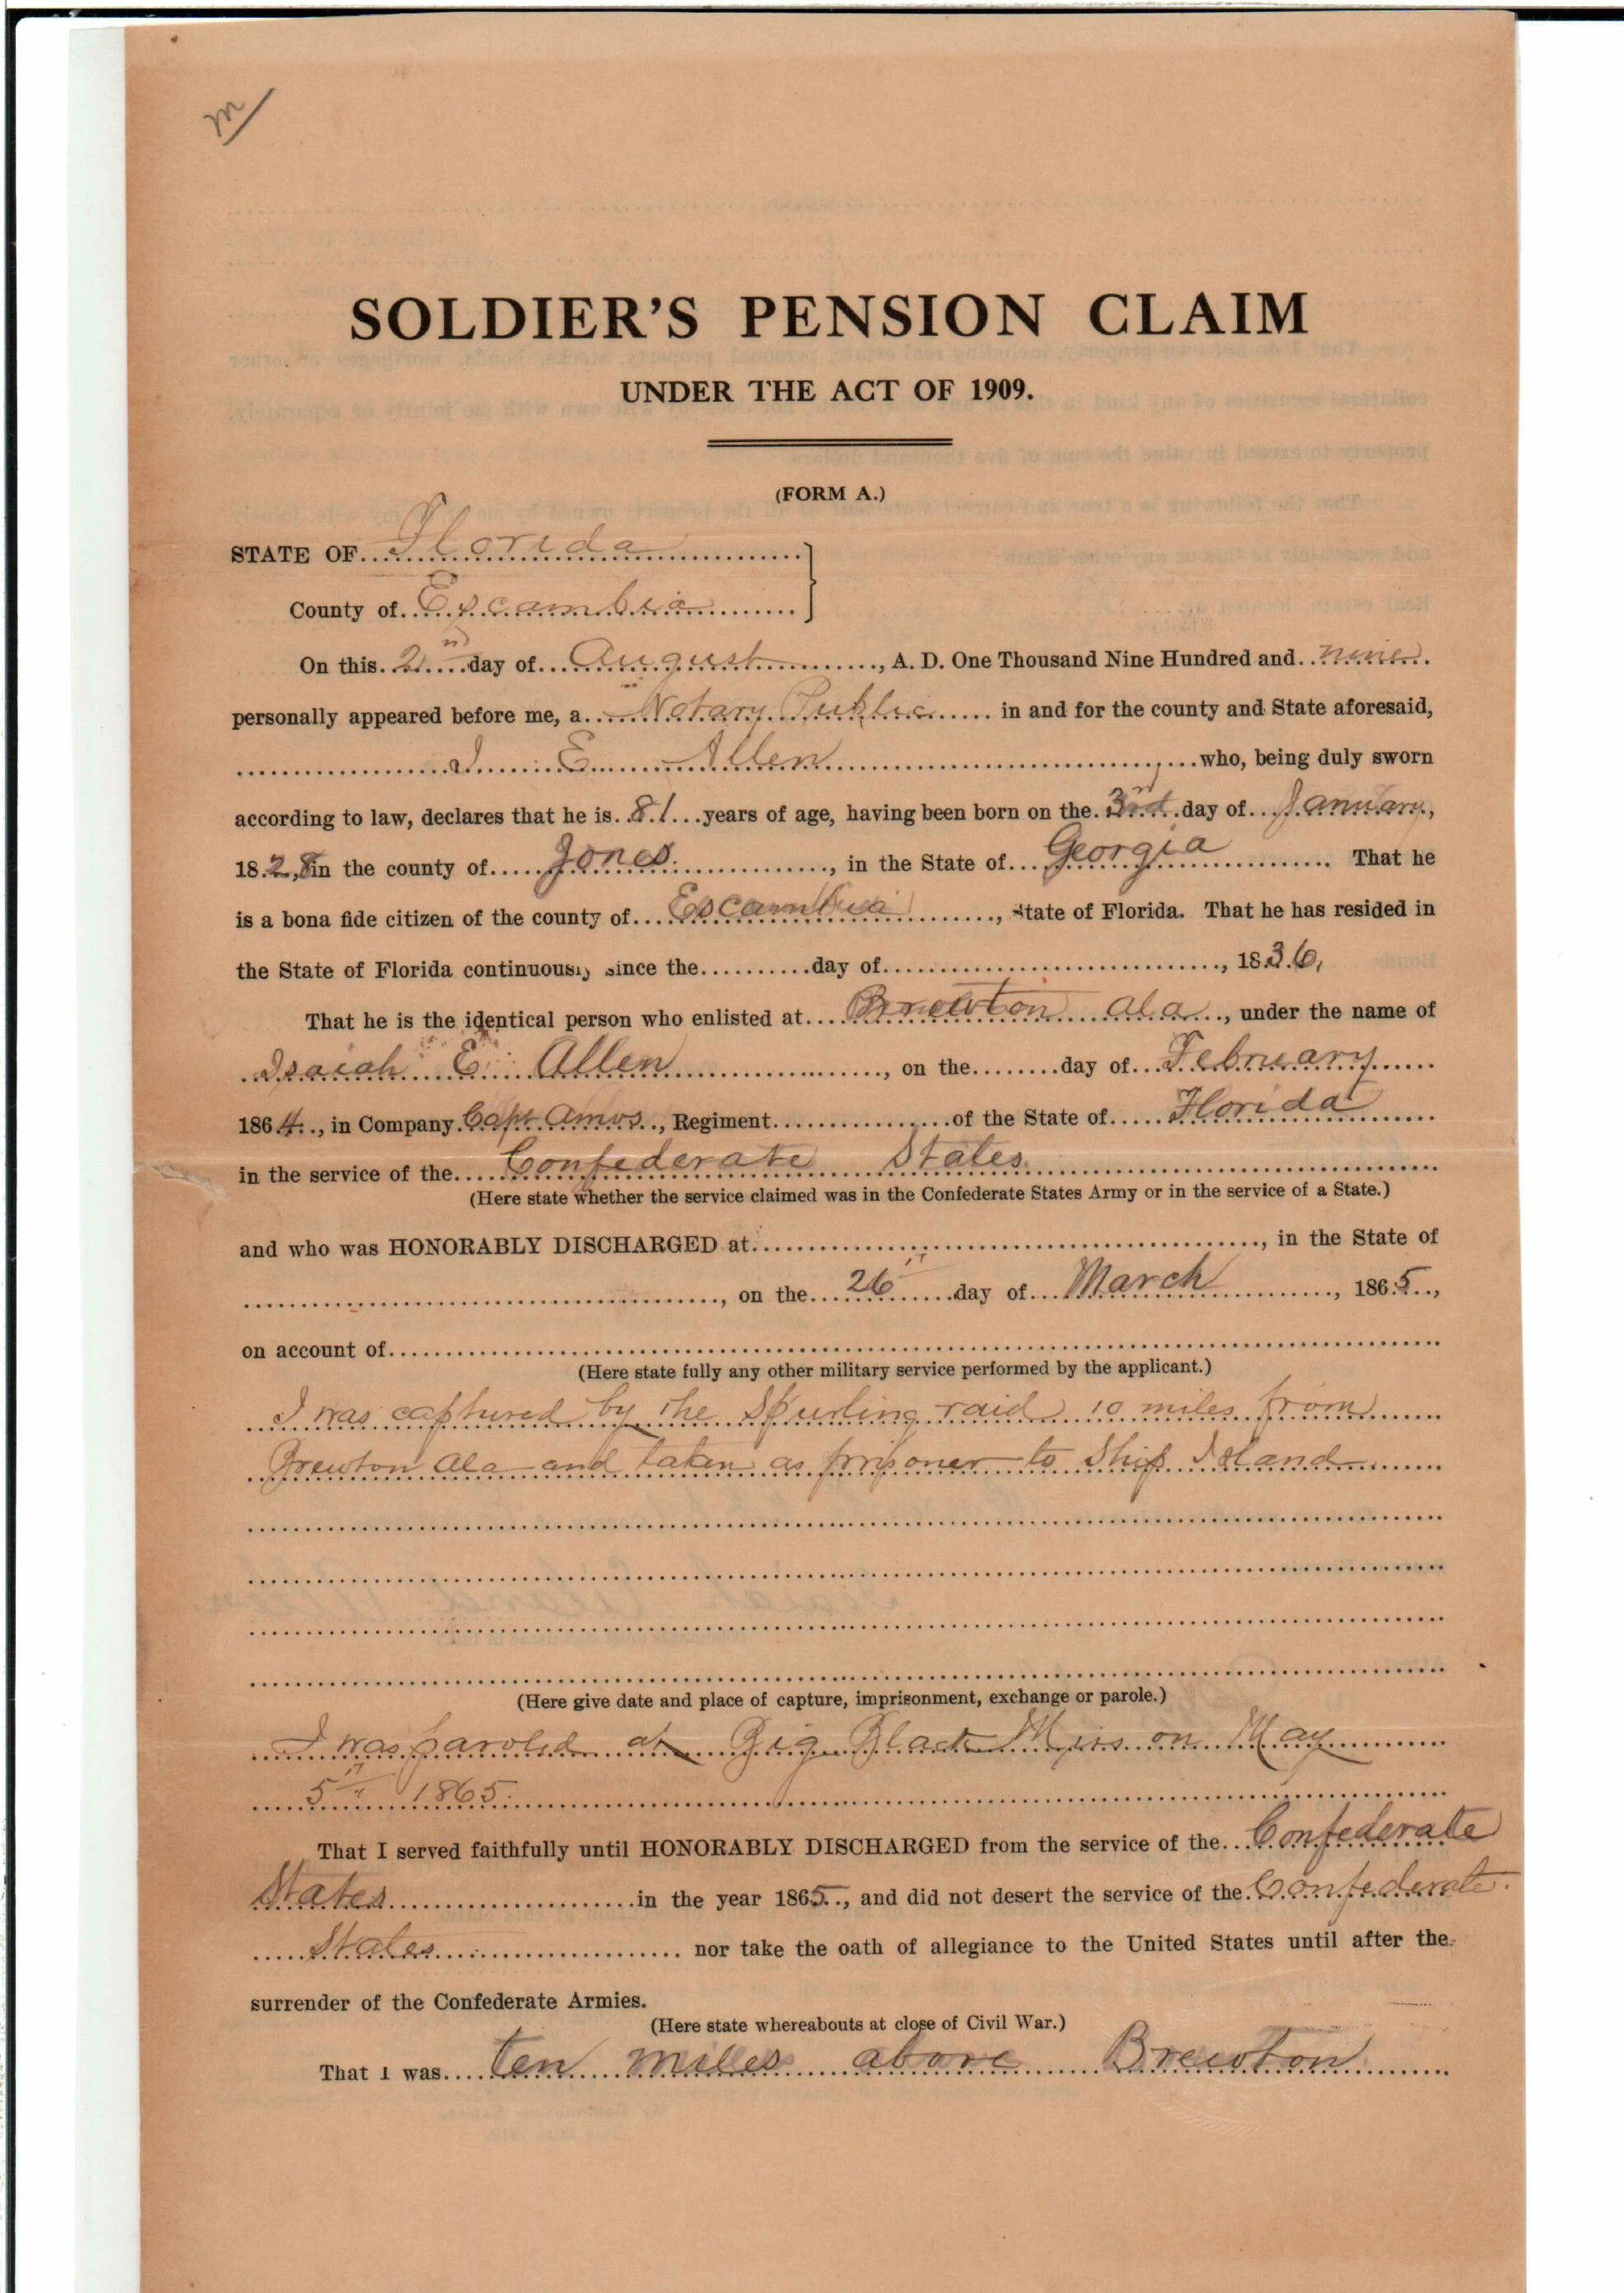 m
SOLDIER'S PENSION CLAIM
UNDER THE ACT OF 1909.
(FORM A.)
STATE OF Florida
County of Escambia
On this 2" day of August, A. D. One Thousand Nine Hundred and nine
personally appeared before me, a Notary Public in and for the county and State aforesaid,
I E Allen, who, being duly sworn
according to law, declares that he is 81 years of age, having been born on the 3rd day of January,
1828, in the county of Jones, in the State of Georgia. That he
is a bona fide citizen of the county of Escambia, State of Florida. That he has resided in
the State of Florida continuously since the day of, 1836,
That he is the identical person who enlisted at Brewton Ala, under the name of
Isaiah E Allen, on the day of February
1864, in Company Capt Amos, Regiment of the State of Florida
in the service of the Confederate States
(Here state whether the service claimed was in the Confederate States Army or in the service of a State.)
and who was HONORABLY DISCHARGED at, in the State of
, on the 26" day of March, 1865,
on account of
(Here state fully any other military service performed by the applicant.)
I was captured by the Spurling raid 10 miles from
Brewton Ala and taken as prisoner to Ship Island
(Here give date and place of capture, imprisonment, exchange or parole.)
I was paroled at Big Black Miss on May
5" 1865.
That I served faithfully until HONORABLY DISCHARGED from the service of the Confederate
States in the year 1865, and did not desert the service of the Confederate
States nor take the oath of allegiance to the United States until after the
surrender of the Confederate Armies.
(Here state whereabouts at close of Civil War.)
That I was ten miles above Brewton